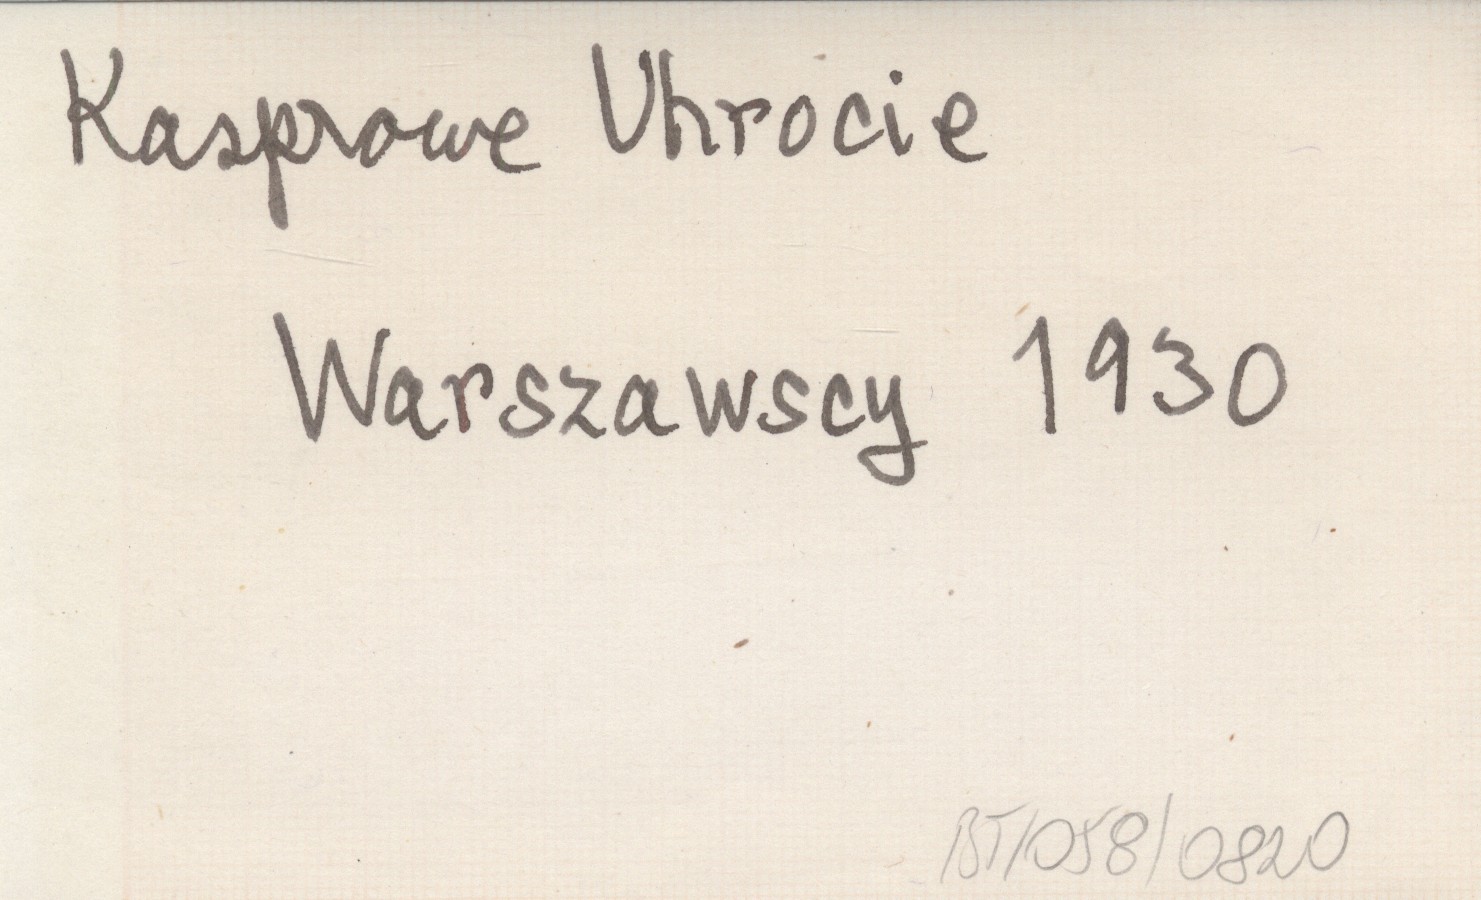 Kasprowe Uhrocie
Warszawscy 1930
BT/058/0820